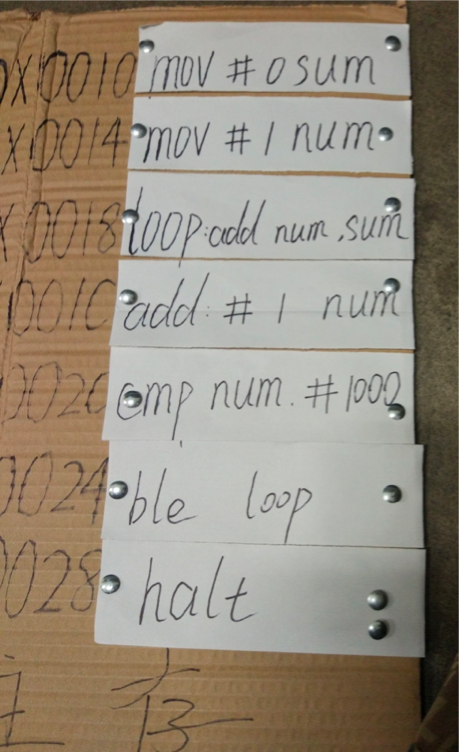 0X10010 mov # 0 sum
X10014 mov # 1 num
X10018 loop:add num,sum
10010 add: # 1 num
0020 cmp num. #1000
0024 ble loop
0028 halt
主 存